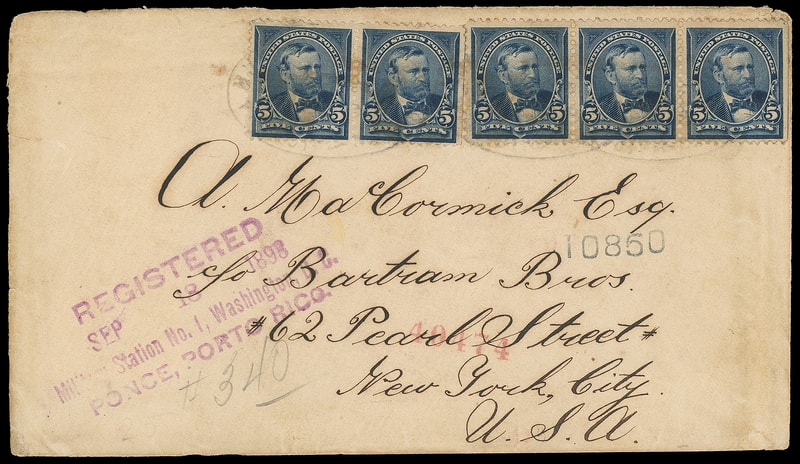 UNITED STATES POSTAGE UNITED STATES POSTAGE UNITED STATES POSTAGE UNITED STATES POSTAGE UNITED STATES POSTAGE
5 5 5 5 5 5 5 5 5 5
FIVE CENTS FIVE CENTS FIVE CENTS FIVE CENTS FIVE CENTS
A. MacCormick Esq.
10850
c/o Bartram Bros.
#62 Pearl Street#
40474
New York, City.
U. S. A.
REGISTERED
SEP 13 1898
Military Station No. 1, Washington, D.C.
PONCE, PORTO RICO.
#340